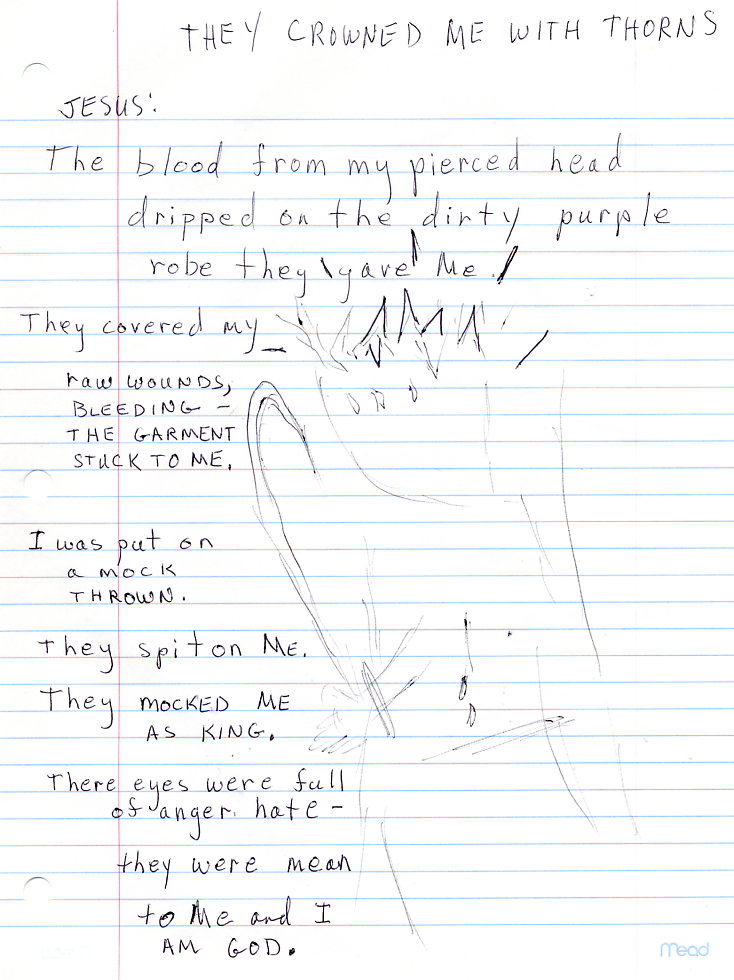 THEY CROWNED ME WITH THORNS
JESUS:
The blood from my pierced head
dripped on the dirty purple
robe they gave Me.
They covered my
raw wounds,
BLEEDING –
THE GARMENT
STUCK TO ME.
I was put on
a mock
THROWN.
They spit on ME.
They MOCKED ME
AS KING.
There eyes were full
of anger. hate –
they were mean
to Me and I
AM GOD.
Mead